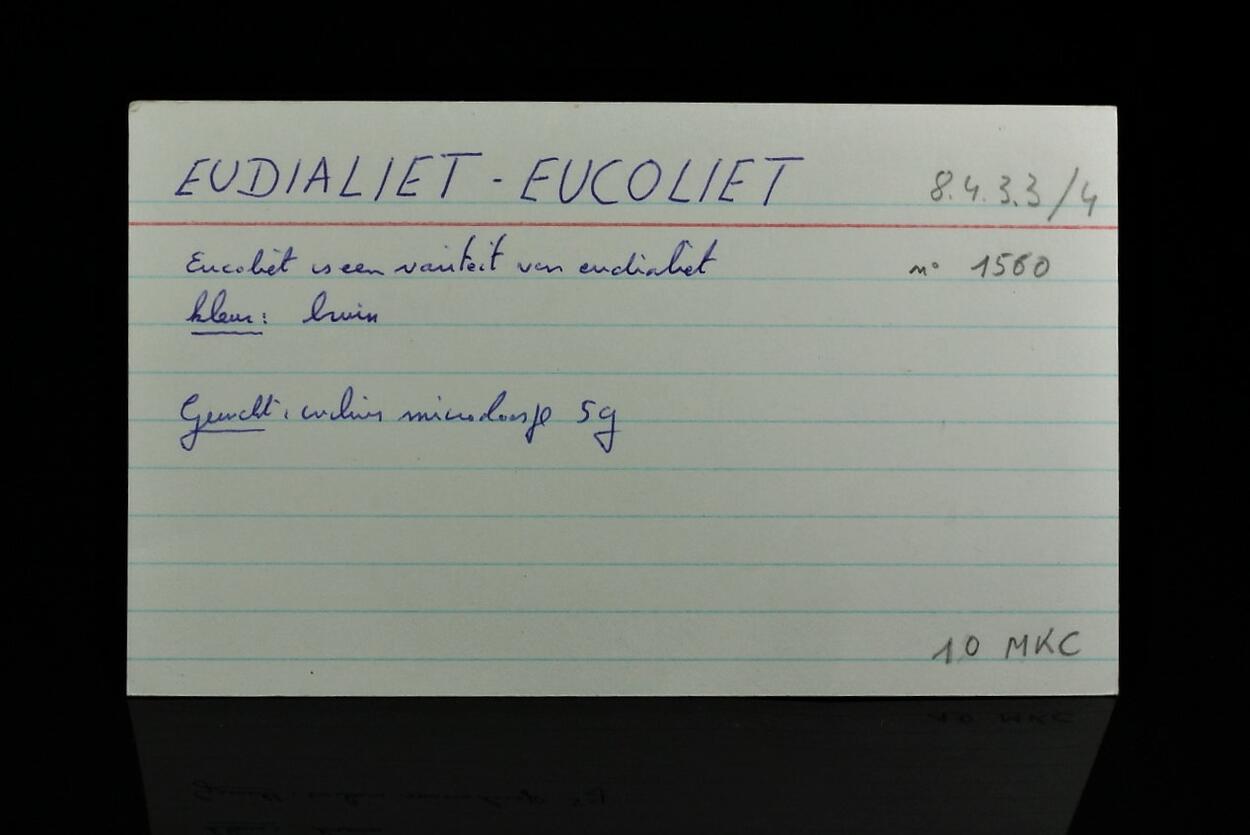 EUDIALIET - EUCOLIET 8.4.3.3/4
Eucoliet is een variteit van eudialiet n° 1560
kleur: bruin
Gewicht: inclusief microdoosje 5g
10 MKC